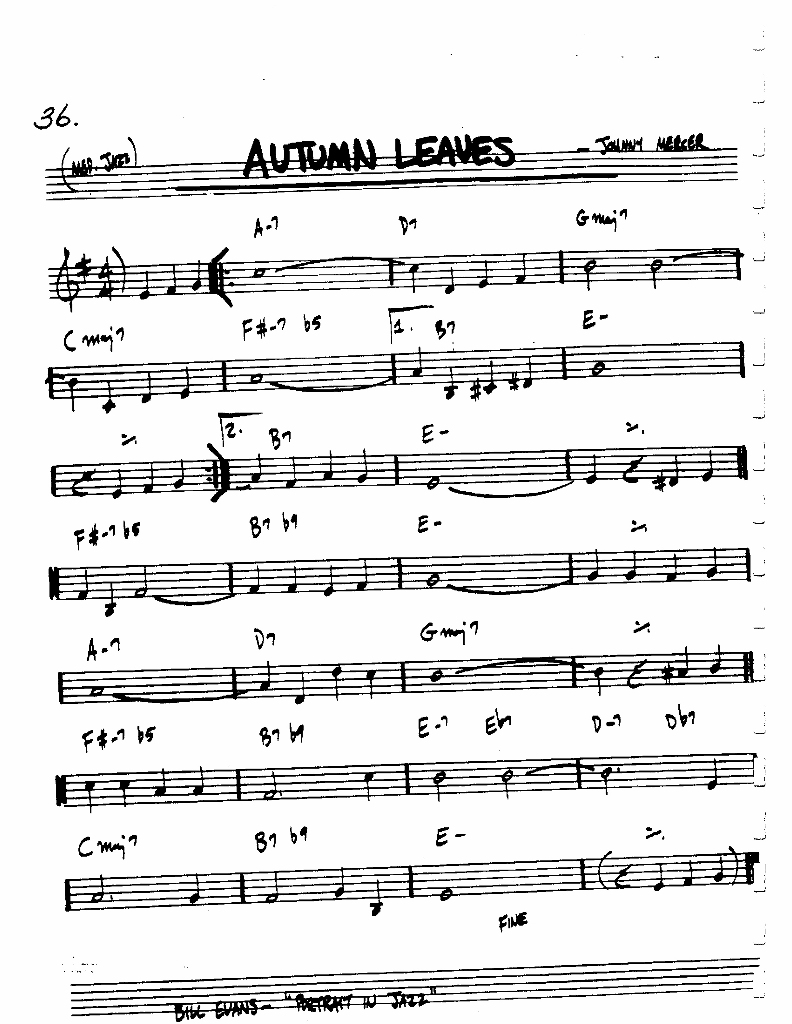 36.
(MED. JAZZ)
AUTUMN LEAVES
- JOHNNY MERCER
A-7 D7 Gmaj7
4/4
Cmaj7 F#-7 b5 1. B7 E-
2. B7 E-
F#-7 b5 B7 b9 E-
A-7 D7 Gmaj7
F#-7 b5 B7 b9 E-7 Eb7 D-7 Db7
Cmaj7 B7 b9 E-
FINE
BILL EVANS- "PORTRAIT IN JAZZ"